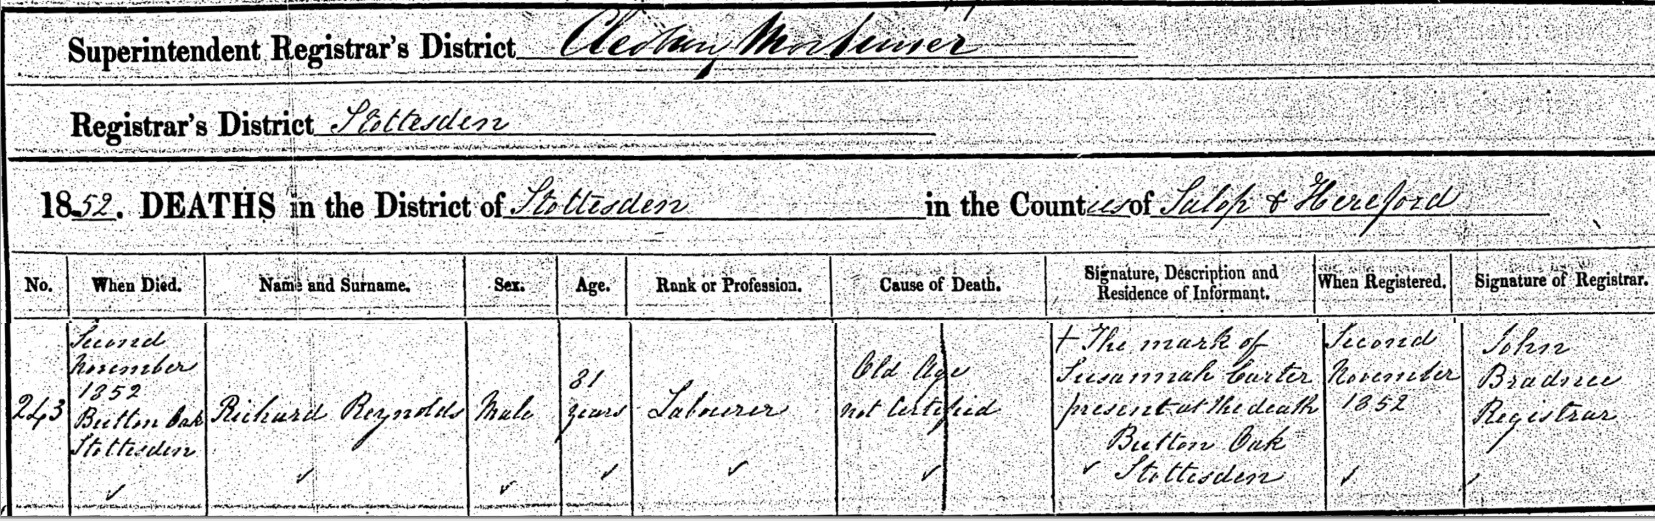 Superintendent Registrar's District Cleobury Mortimer
Registrar's District Stottesden
1852. DEATHS in the District of Stottesden in the Counties of Salop & Hereford
No. When Died. Name and Surname. Sex. Age. Rank or Profession. Cause of Death. Signature, Description and Residence of Informant. When Registered. Signature of Registrar.
243
Second
November
1852
Button Oak
Stottesden
Richard Reynolds
Male
81
years
Labourer
Old Age
not Certified
+ The mark of
Susannah Carter
present at the death
Button Oak
Stottesden
Second
November
1852
John
Bradnee
Registrar